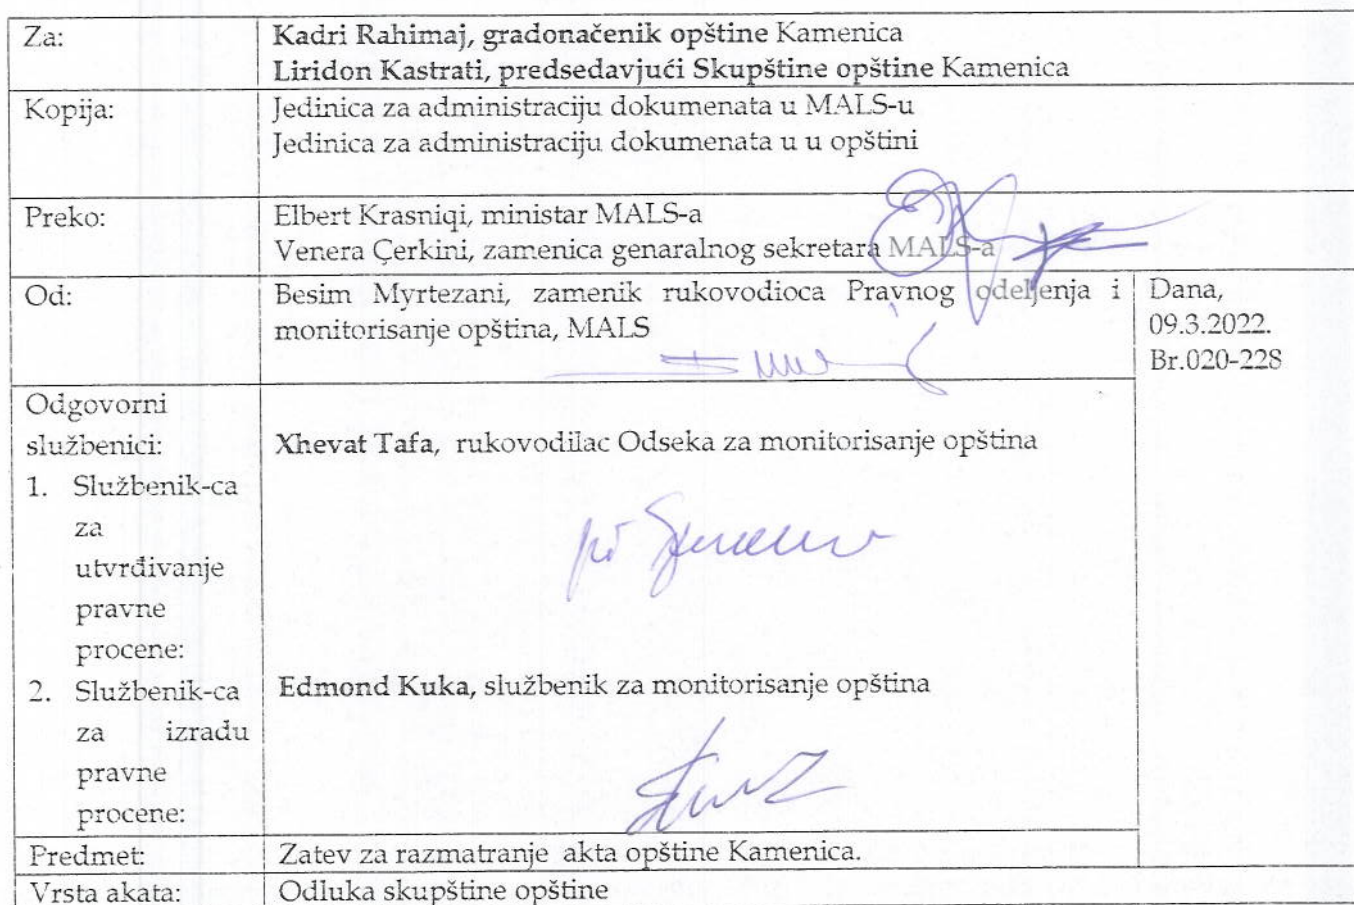 Za: Kadri Rahimaj, gradonačenik opštine Kamenica
Liridon Kastrati, predsedavjući Skupštine opštine Kamenica
Kopija: Jedinica za administraciju dokumenata u MALS-u
Jedinica za administraciju dokumenata u u opštini
Preko: Elbert Krasniqi, ministar MALS-a
Venera Çerkini, zamenica genaralnog sekretara MALS-a
Od: Besim Myrtezani, zamenik rukovodioca Pravnog odeljenja i
monitorisanje opština, MALS
Dana,
09.3.2022.
Br.020-228
Odgovorni
službenici:
1. Službenik-ca
za
utvrđivanje
pravne
procene:
Xhevat Tafa, rukovodilac Odseka za monitorisanje opština
2. Službenik-ca
za izradu
pravne
procene:
Edmond Kuka, službenik za monitorisanje opština
Predmet: Zatev za razmatranje akta opštine Kamenica.
Vrsta akata: Odluka skupštine opštine